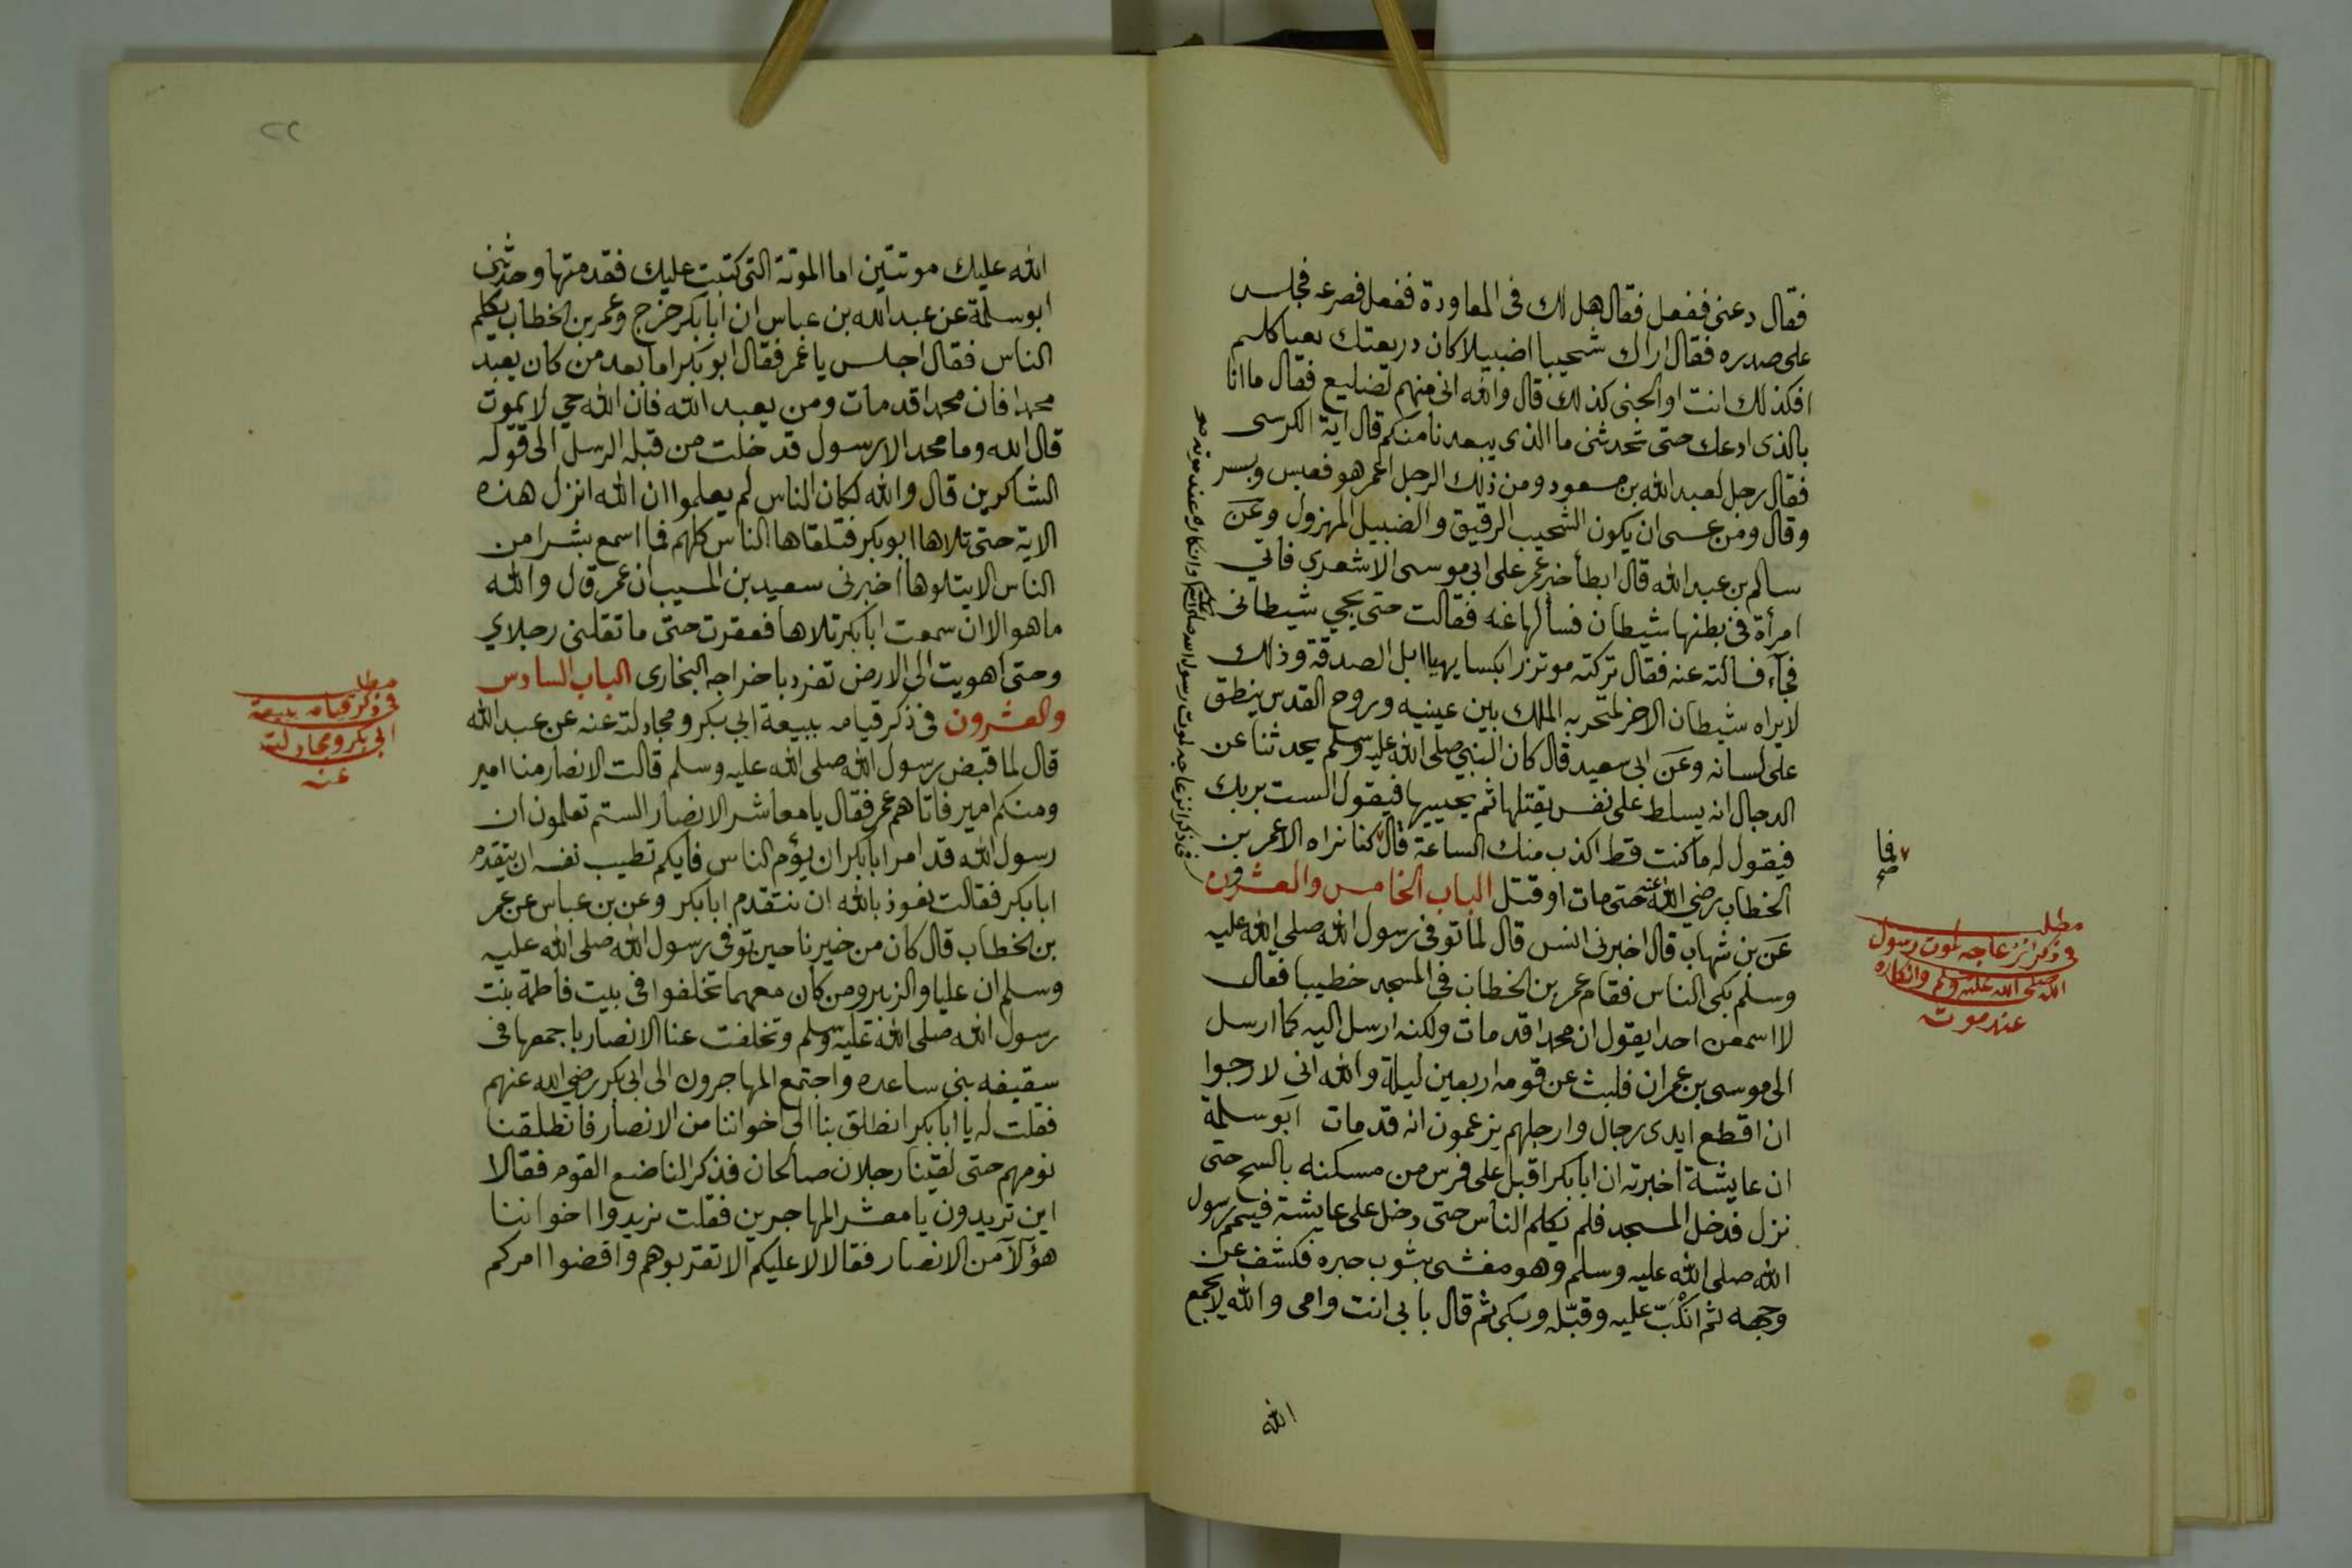 فقال دعنى ففعل فقال هل لك فى المعاودة ففعل فصرعه فجلس
على صدره فقال اراك شحيبا اضبيلا كان دريعتك يعيا كلهم
افكذلك انت او الجنى كذلك قال والله انى منهم لضليع فقال ما انا
بالذى ادعك حتى تحدثنى ما الذى يبعدنا منكم قال اية الكرسى
فقال رجل لعبد الله بن مسعود ومن ذلك الرجل اعمر هو فعبس وبسر
وقال ومن عسى ان يكون الشحيب الرقيق والضبيل المهزول وعن
سالم بن عبد الله قال ابطأ خبر عمر على ابى موسى الاشعرى فاتى
امرأة فى بطنها شيطان فسألها عنه فقالت حتى يجي شيطانى
فجآء فسالته عنه فقال تركته موتزرا بكسا يهيا ابل الصدقة وذلك
لا يراه شيطان الاخر لمنخريه الملك بين عينيه وروح القدس ينطق
على لسانه وعن ابى سعيد قال كان النبي صلى الله عليه وسلم يحدثنا عن
الدجال انه يسلط على نفس يقتلها ثم يحييها فيقول الست بربك
فيقول له ما كنت قط اكذب منك الساعة قال كنا نراه الا عمر بن
الخطاب رضي الله عنه حتى مات او قتل الباب الخامس والعشرون
عن بن شهاب قال اخبرنى انس قال لما توفى رسول الله صلى الله عليه
وسلم بكى الناس فقام عمر بن الخطاب فى المسجد خطيبا فقال
لا اسمعن احدا يقول ان محمدا قد مات ولكنه ارسل اليه كما ارسل
الى موسى بن عمران فلبث عن قومه اربعين ليلة والله انى لارجوا
ان اقطع ايدى رجال وارجلهم يزعمون انه قد مات ابو سلمة
ان عايشة اخبرته ان ابا بكر اقبل على فرس من مسكنه بالسح حتى
نزل فدخل المسجد فلم يكلم الناس حتى دخل على عايشة فيمم رسول
الله صلى الله عليه وسلم وهو مغشى بثوب حبره فكشف عن
وجهه ثم انكب عليه وقبله وبكى ثم قال بابى انت وامى والله لا يجمع
الله
فى ذكر انزعاجه لموت رسول الله صلى الله عليه وسلم وانكاره عند موته صح
فا
صح
مطلب
فى ذكر انزعاجه لموت رسول
الله صلى الله عليه وسلم وانكاره
عند موته
٢٢
الله عليك موتتين اما الموتة التى كتبت عليك فقد متها وحدثنى
ابو سلمة عن عبد الله بن عباس ان ابا بكر خرج وعمر بن الخطاب يكلم
الناس فقال اجلس يا عمر فقال ابو بكر اما بعد من كان يعبد
محمدا فان محمدا قد مات ومن يعبد الله فان الله حي لا يموت
قال الله وما محمد الا رسول قد خلت من قبله الرسل الى قوله
الشاكرين قال والله لكان الناس لم يعلموا ان الله انزل هذه
الاية حتى تلاها ابو بكر فتلقاها الناس كلهم فما اسمع بشرا من
الناس الا يتلوها اخبرنى سعيد بن المسيب ان عمر قال والله
ما هو الا ان سمعت ابا بكر تلاها فعقرت حتى ما تقلنى رجلاي
وحتى اهويت الى الارض تفرد باخراجه البخارى الباب السادس
والعشرون فى ذكر قيامه ببيعة ابي بكر ومجادلته عنه عن عبد الله
قال لما قبض رسول الله صلى الله عليه وسلم قالت الانصار منا امير
ومنكم امير فاتاهم عمر فقال يا معاشر الانصار الستم تعلمون ان
رسول الله قد امر ابا بكر ان يؤم الناس فايكم تطيب نفسه ان يتقدم
ابا بكر فقالت نعوذ بالله ان نتقدم ابا بكر وعن بن عباس عن عمر
بن الخطاب قال كان من خيرنا حين توفى رسول الله صلى الله عليه
وسلم ان عليا والزبير ومن كان معهما تخلفوا فى بيت فاطمة بنت
رسول الله صلى الله عليه وسلم وتخلفت عنا الانصار باجمعها فى
سقيفه بنى ساعده واجتمع المهاجرون الى ابى بكر رضي الله عنهم
فقلت له يا ابا بكر انطلق بنا الى اخواننا من الانصار فانطلقنا
نومهم حتى لقينا رجلان صالحان فذكر لنا صنع القوم فقالا
اين تريدون يا معشر المهاجرين فقلت نريد وا اخواننا
هؤلآ من الانصار فقالا لا عليكم الا تقربوهم واقضوا امركم
مطلب
فى ذكر قيامه ببيعة
ابى بكر ومجادلته
عنه